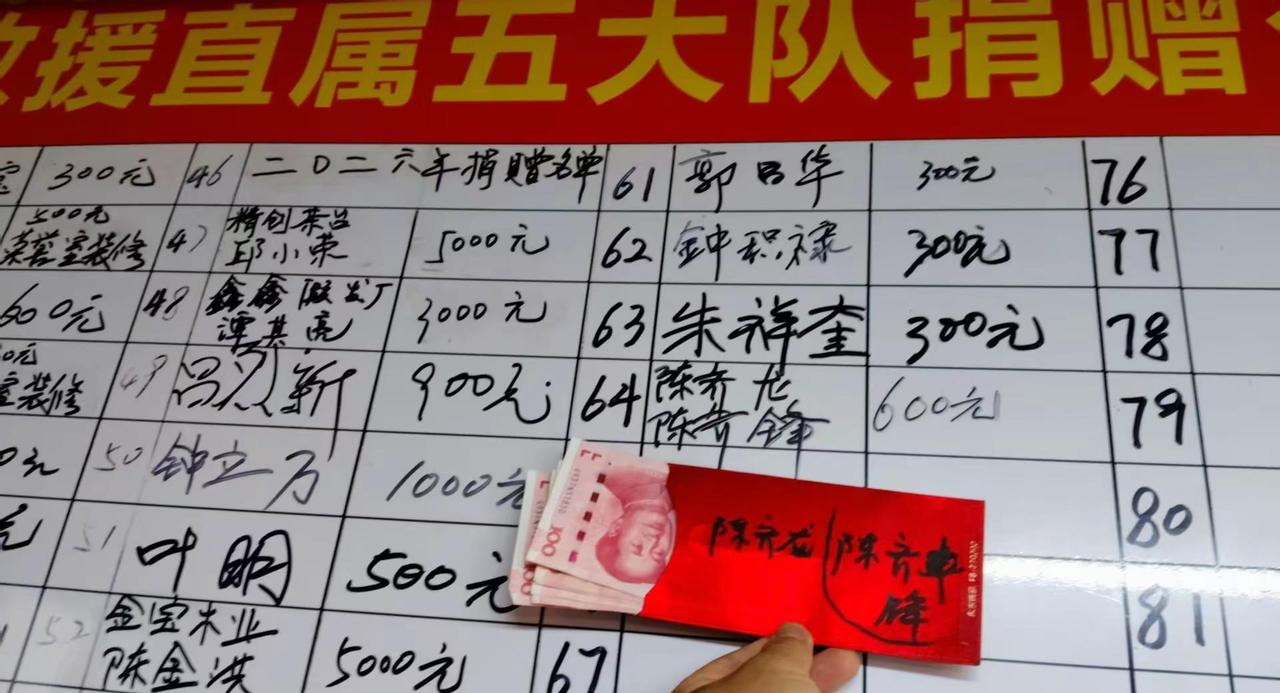 救援直属五大队捐赠
300元 46 二0二六年捐赠名单 61 郭吕华 300元 76
500元
荣誉室装修 47 精创茶台
邱小荣 5000元 62 钟积禄 300元 77
600元 48 鑫鑫
谭其亮 3000元 63 朱祥奎 300元 78
室装修 49 900元 64 陈齐龙
陈齐锋 600元 79
50 钟立万 1000元 80
51 叶明 500元 81
52 金宝木业
陈金洪 5000元 67
陈齐龙 陈齐
锋
100